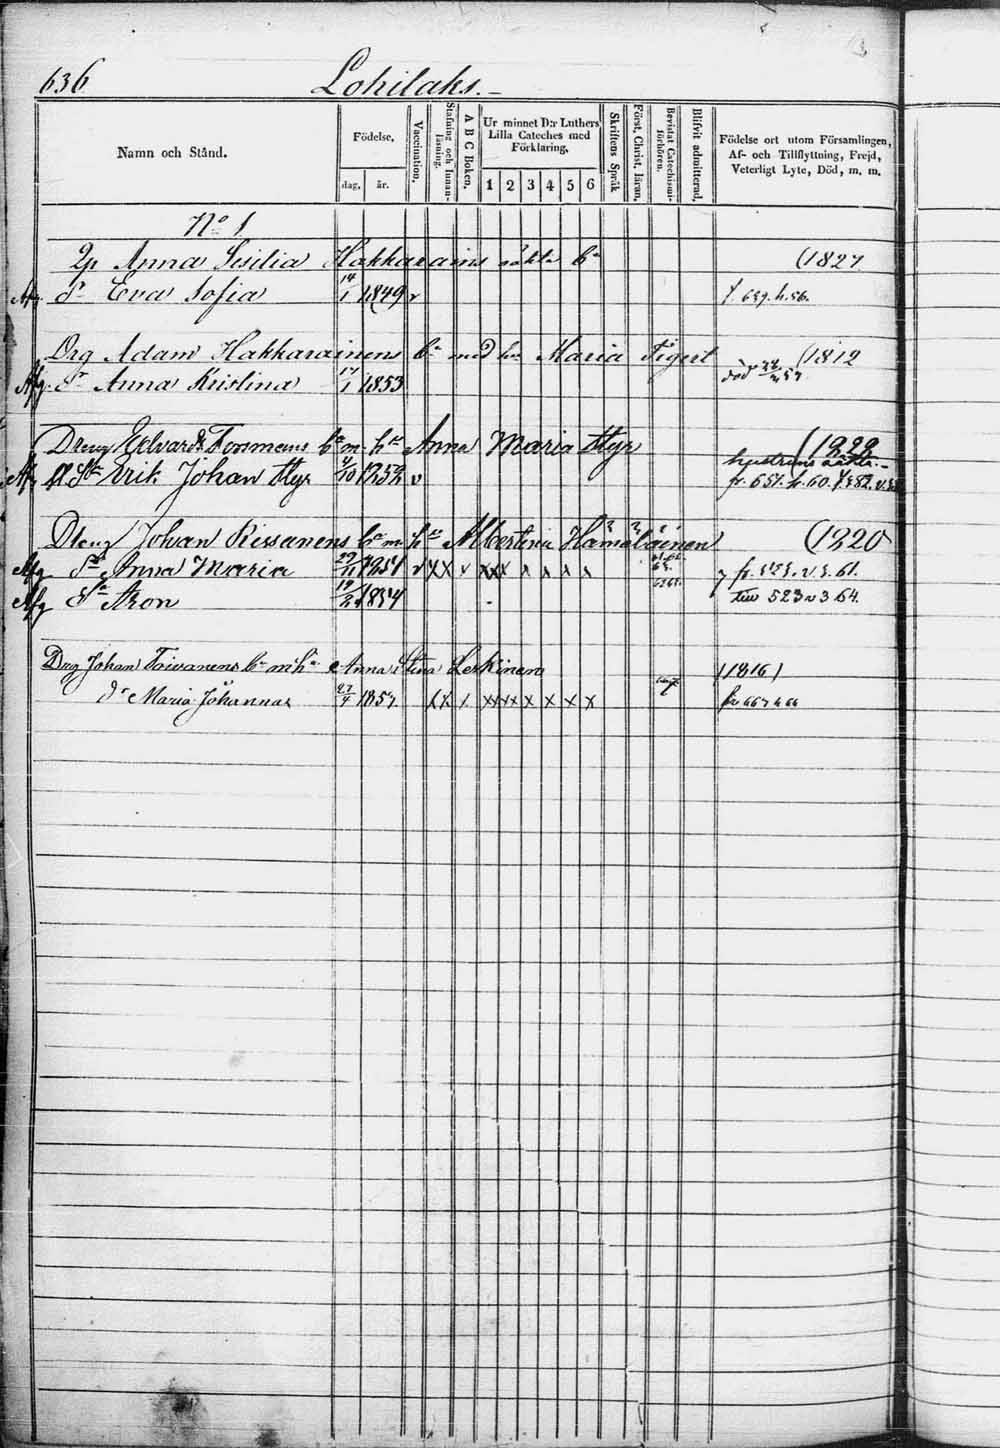 636
Lohilaks.
Namn och Stånd.
Födelse,
dag,
år.
Vaccination.
Stafning och Innanläsning.
A B C Boken.
Ur minnet D:r Luthers Lilla Cateches med Förklaring.
1 2 3 4 5 6
Skriftens Språk
Först. Christ. läran.
Bevistat Catechismiförhören.
Blifvit admitterad.
Födelse ort utom Församlingen, Af- och Tillflyttning, Frejd, Veterligt Lyte, Död, m. m.
No 1.
Anna Sisilia Hakkarains oäkta bn (1827
Afg. Dr Eva Sofia 14/1 1849 v f. 639. h. 56.
Drg Adam Hakkarainens bn med hu Maria Tigert (1812
Afg. Dr Anna Kristina 17/1 1853 död 57
Dreng Edvard Forsmans bn m. hu Anna Maria Styr (1822
hustruns oäkta.
Afg Sn Erik Johan Styr /10 1852 v fr. 651. h. 60. f. 582. v.
Dreng Johan Rissanens bn m hu Albertina Hämäläinen (1820
Afg Dr Anna Maria 29/11 1851 v x x v x x x x x x x fr. 525. v. 3. 61.
Afg Sn Aron 19/2 1854 till 523 v 3 64.
Drg Johan Toivanens bn m hu Anna Stina Leskinen (1816)
dr Maria Johanna 27/4 1857 x x x x x x x x x x x fr 667 h 66